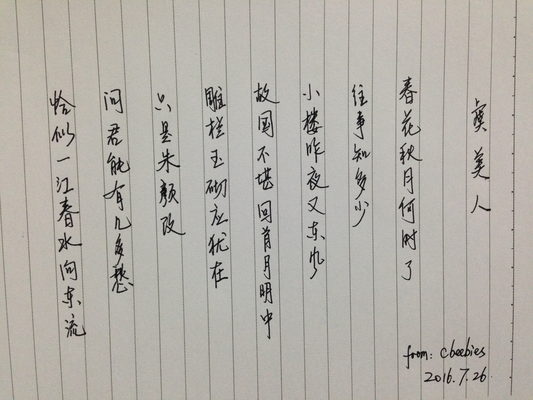 虞美人
春花秋月何时了
往事知多少
小楼昨夜又东风
故国不堪回首月明中
雕栏玉砌应犹在
只是朱颜改
问君能有几多愁
恰似一江春水向东流
from: cbeebies
2016.7.26